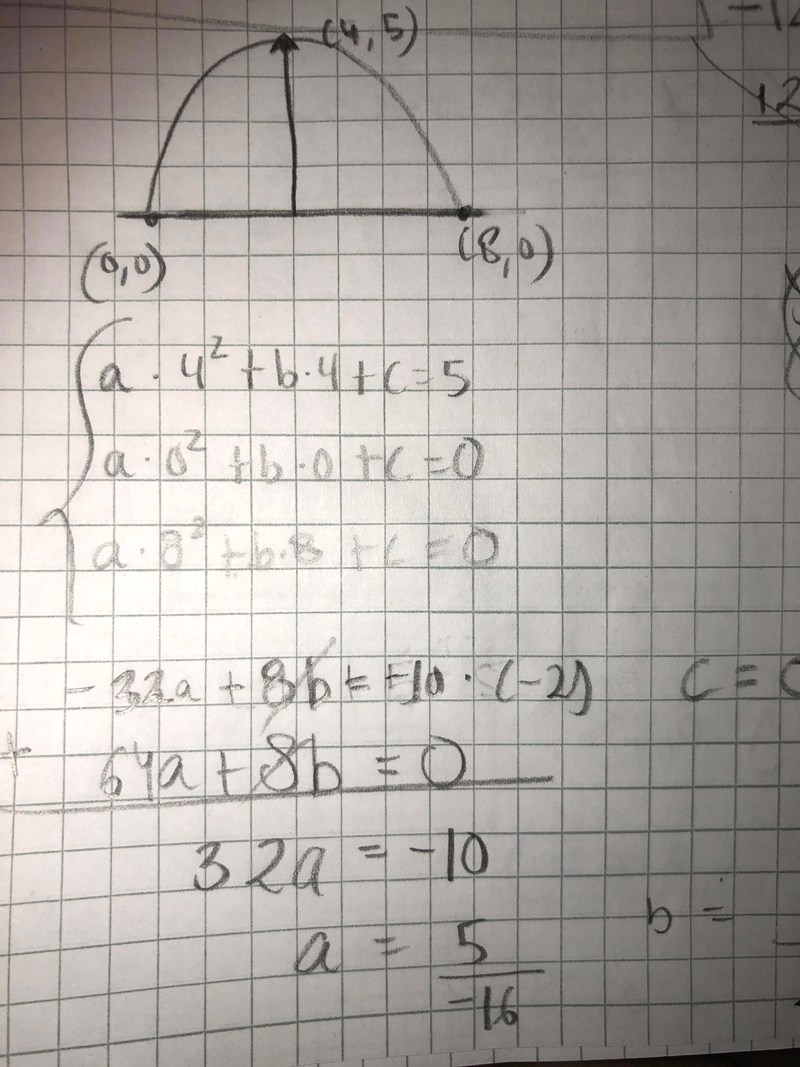 (4,5)
-12
12
(0,0)
(8,0)
a · 4² + b·4 + c = 5
a · 0² + b · 0 + c = 0
a · 8² + b · 8 + c = 0
- 32a + 8b = -10 · (-2) c =
+ 64a + 8b = 0
32a = -10
a = 5
-16
b =